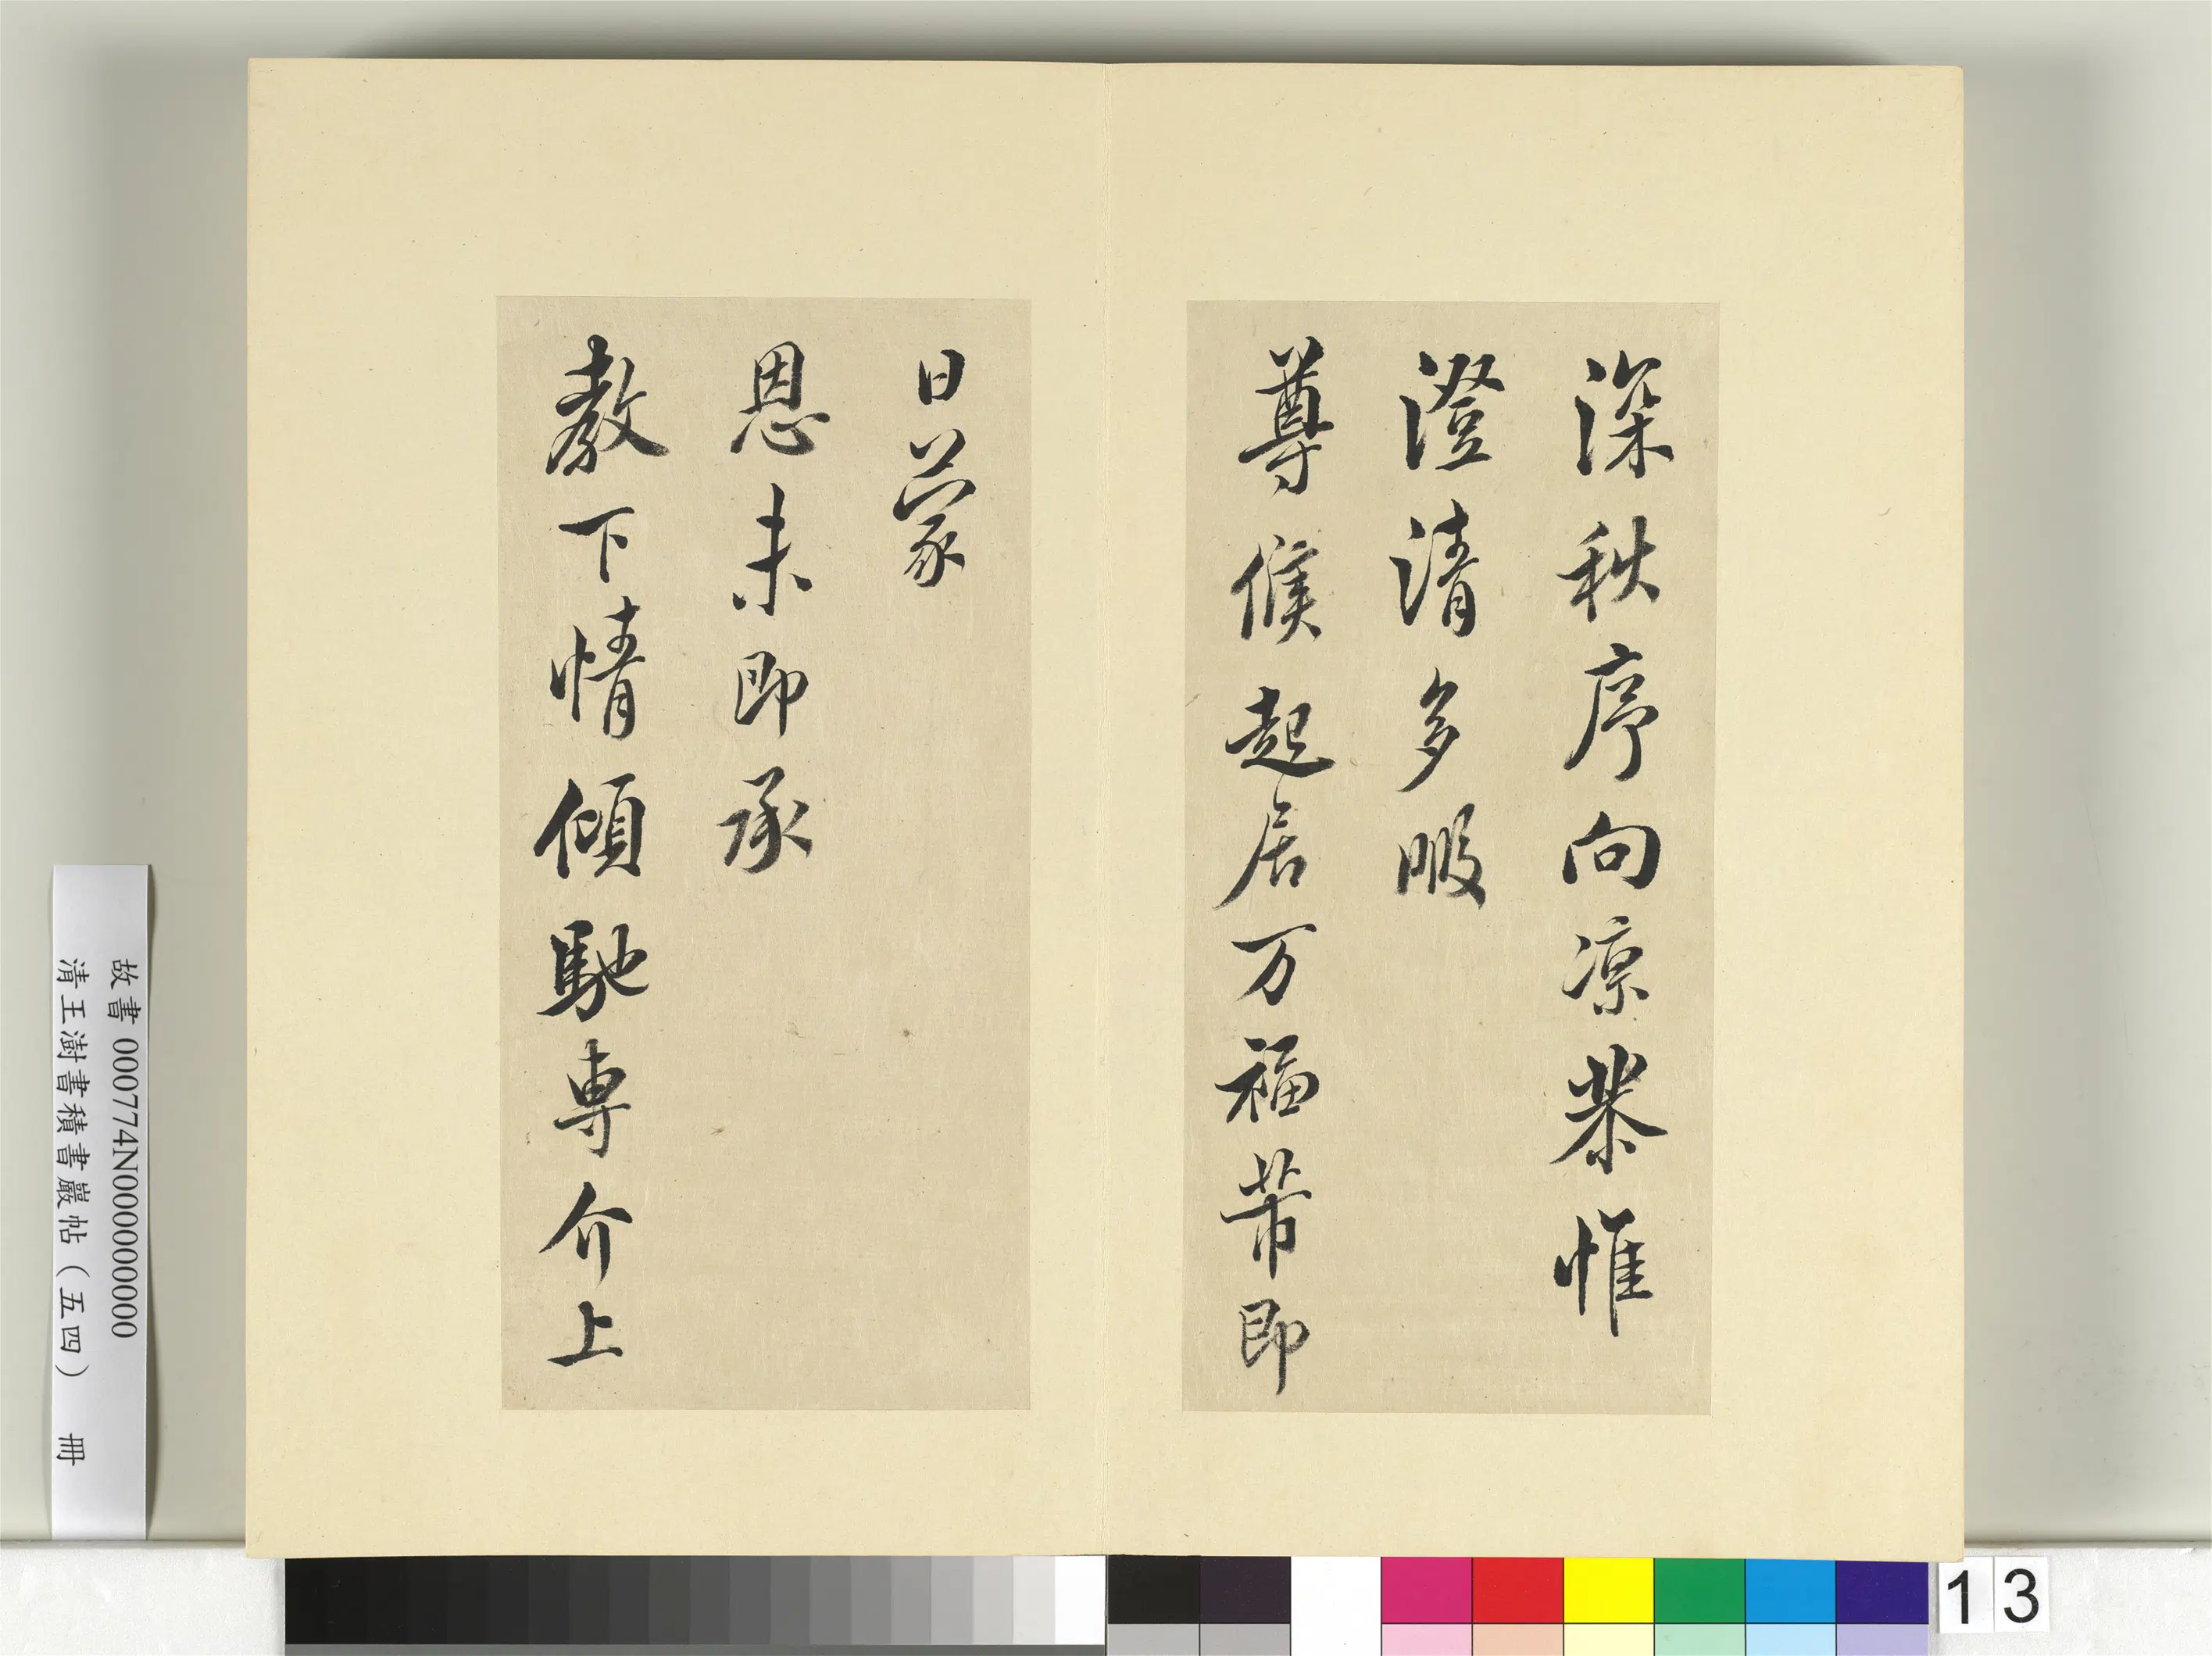 深秋序向涼恭惟
澄清多暇
尊候起居万福芾即
日蒙
恩未即承
教下情傾馳專介上
故書 000774N000000000
清王澍書積書巖帖（五四） 冊
13